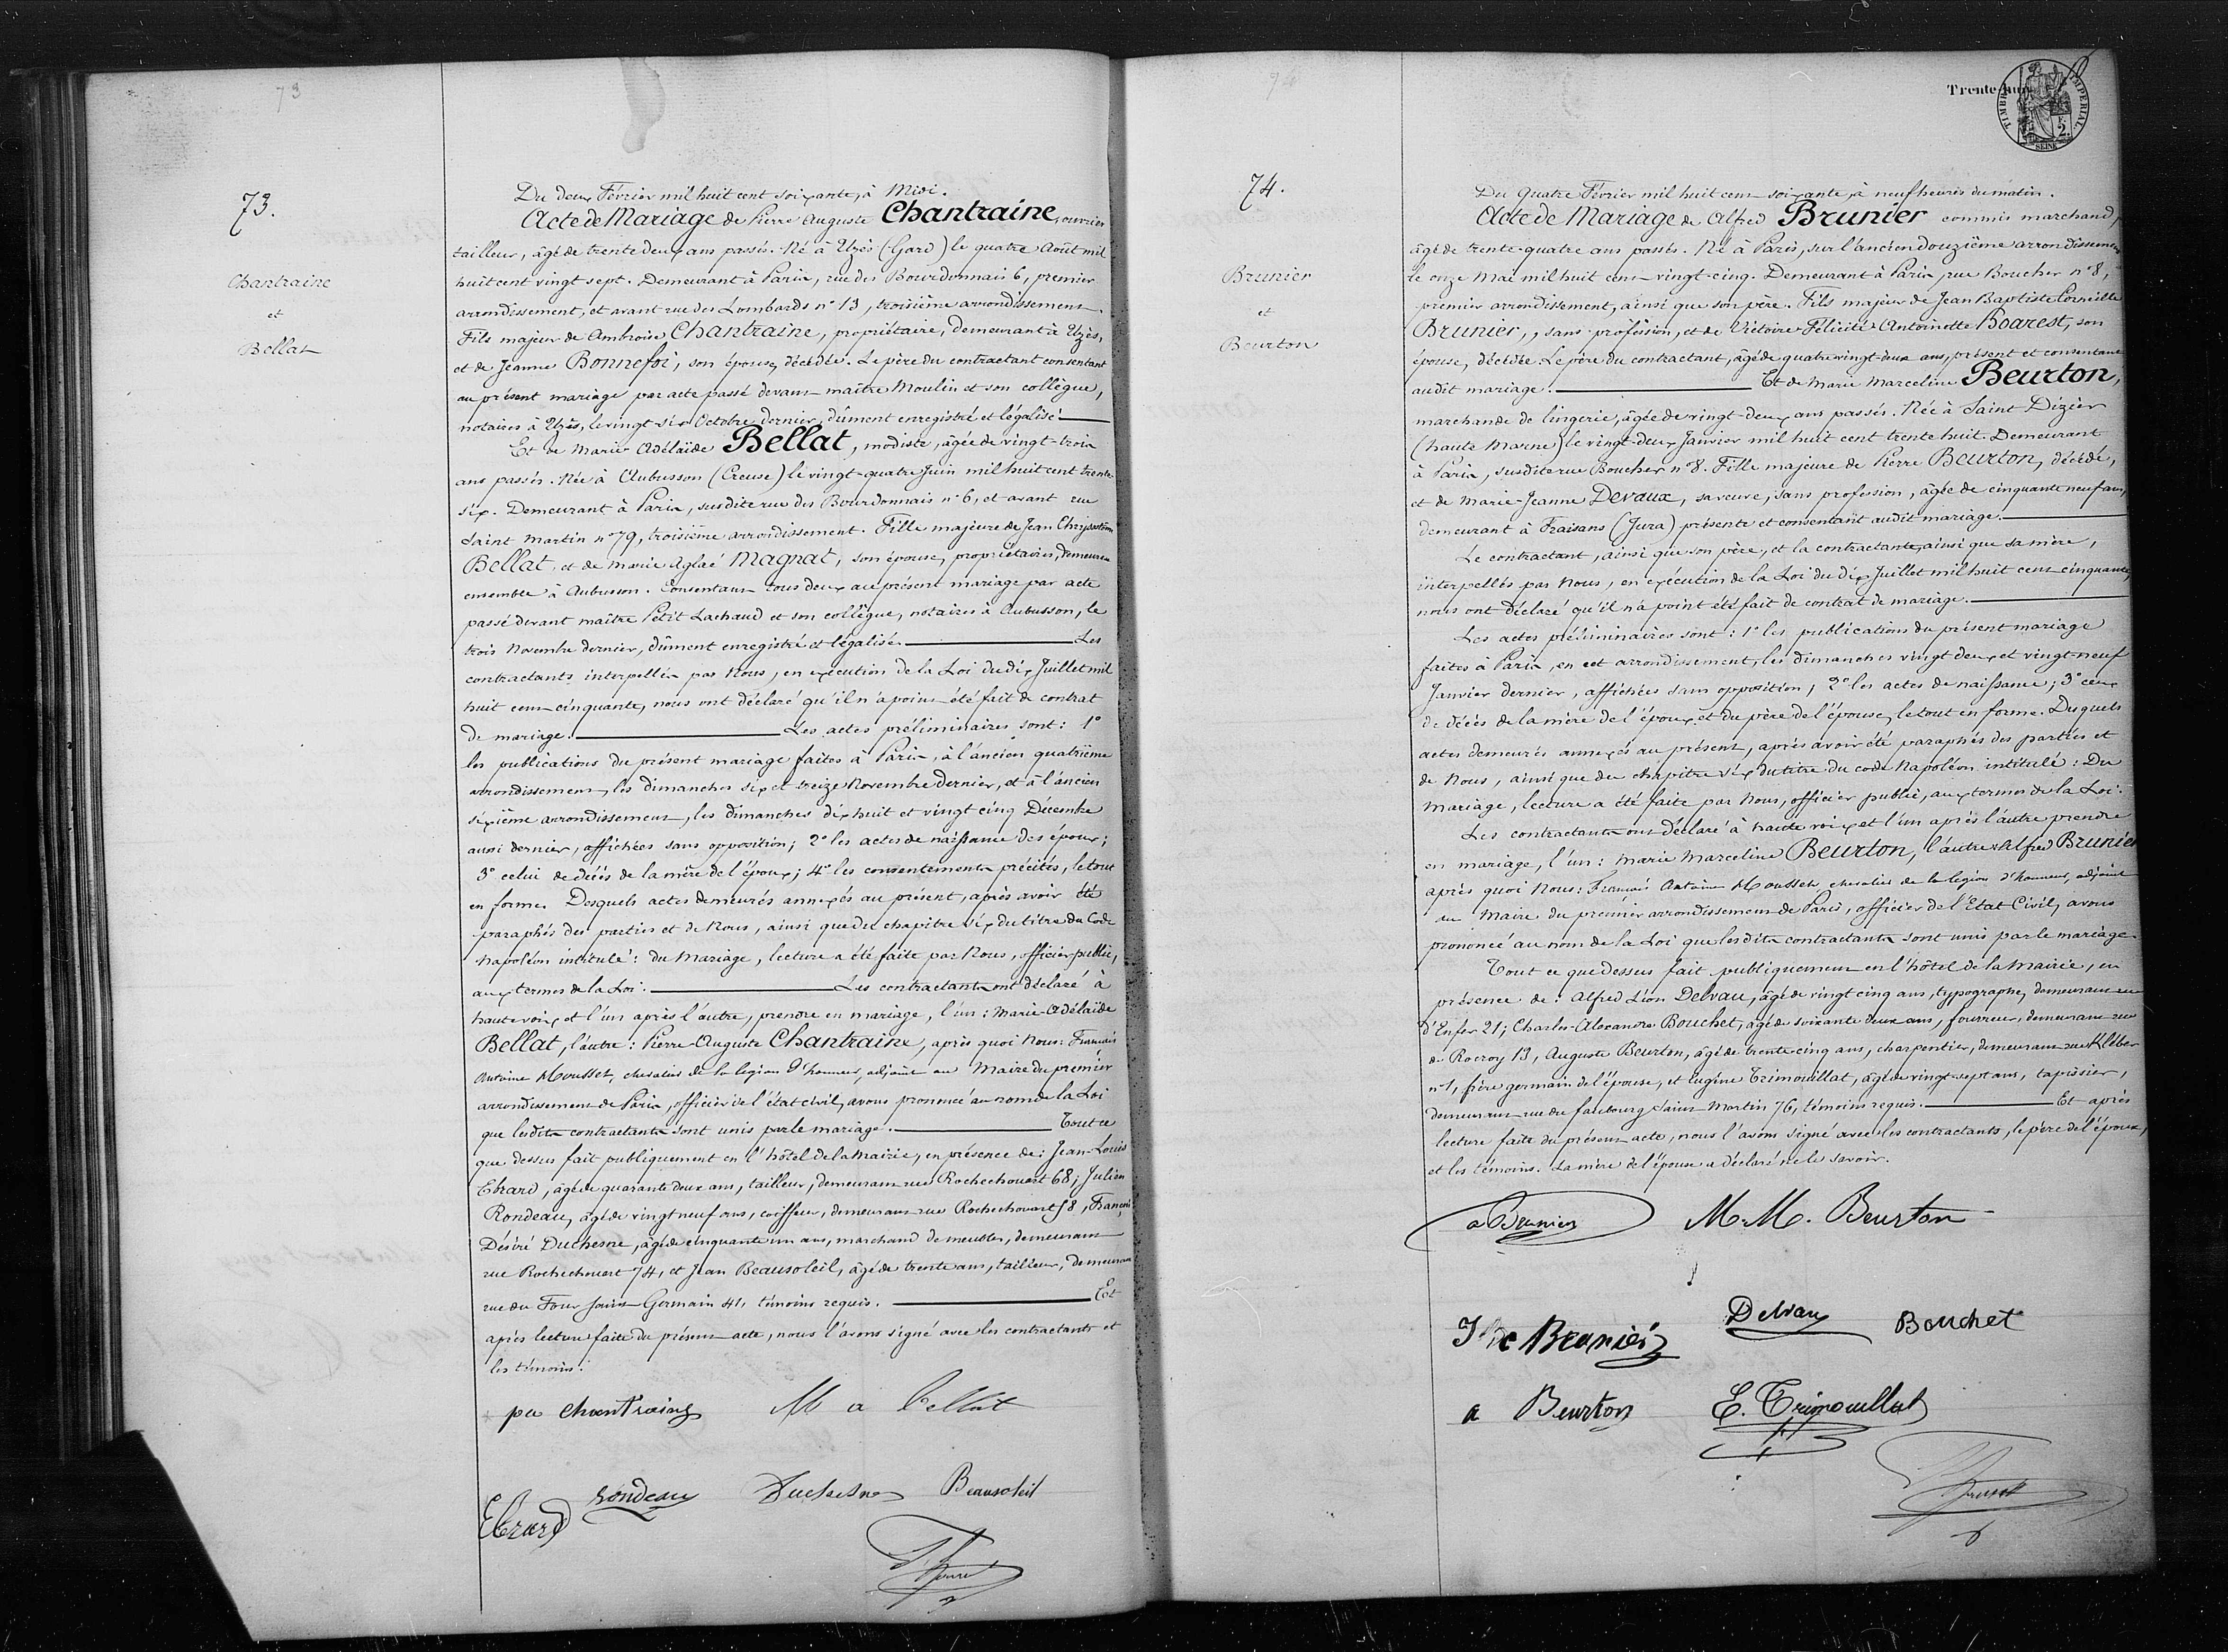 73
73.
Chantraine
et
Bellat
Du deux Février mil huit cent soixante, à Midi.
Acte de Mariage de Pierre Auguste Chantraine, ouvrier
tailleur, âgé de trente deux ans passés. Né à Uzès (Gard) le quatre Août mil
huit cent vingt sept. Demeurant à Paris, rue des Bourdonnais 6, premier
arrondissement, et avant rue des Lombards n° 13, troisième arrondissement.
Fils majeur de Ambroise Chantraine, propriétaire, demeurant à Uzès,
et de Jeanne Bonnefoi, son épouse, décédée. Le père du contractant consentant
au présent mariage par acte passé devant maître Moulin et son collègue,
notaires à Uzès, le vingt six Octobre dernier, dûment enregistré et légalisé
Et de Marie Adélaïde Bellat, modiste, âgée de vingt-trois
ans passés. Née à Aubusson (Creuse) le vingt-quatre Juin mil huit cent trente-
six. Demeurant à Paris, susdite rue des Bourdonnais n° 6, et avant rue
Saint Martin n° 79, troisième arrondissement. Fille majeure de Jean Chrysostôme
Bellat, et de Marie Aglaé Magnat, son épouse, propriétaires, demeurant
ensemble à Aubusson. Consentans tous deux au présent mariage par acte
passé devant maître Petit Lachaud et son collègue, notaires à Aubusson, le
trois Novembre dernier, dûment enregistré et légalisé. Les
contractants interpellés par Nous, en exécution de la Loi du dix Juillet mil
huit cent cinquante, nous ont déclaré qu'il n'a point été fait de contrat
de mariage. Les actes préliminaires sont: 1°
les publications du présent mariage faites à Paris, à l'ancien quatrième
arrondissement, les dimanches six et treize Novembre dernier, et à l'ancien
sixième arrondissement, les dimanches dix huit et vingt cinq Décembre
aussi dernier, affichées sans opposition; 2° les actes de naissance des époux;
3° celui de décès de la mère de l'époux; 4° les consentements précités, le tout
en forme. Desquels actes demeurés annexés au présent, après avoir été
paraphés des parties et de Nous, ainsi que du chapitre six du titre du Code
Napoléon intitulé: du Mariage, lecture a été faite par Nous, officier public,
aux termes de la Loi. Les contractants ont déclaré à
haute voix et l'un après l'autre, prendre en mariage, l'un: Marie-Adélaïde
Bellat, l'autre: Pierre-Auguste Chantraine, après quoi Nous: François
Antoine Mousset, chevalier de la légion d'honneur, adjoint au Maire du premier
arrondissement de Paris, officier de l'état civil, avons prononcé au nom de la Loi
que lesdits contractants sont unis par le mariage. Tout ce
que dessus fait publiquement en l'hôtel de la Mairie, en présence de: Jean-Louis
Ebrard, âgé de quarante deux ans, tailleur, demeurant rue Rochechouart 68; Julien
Rondeau, âgé de vingt neuf ans, coiffeur, demeurant rue Rochechouart 58, François
Désiré Duchesne, âgé de cinquante un ans, marchand de meubles, demeurant
rue Rochechouart 74, et Jean Beausoleil, âgé de trente ans, tailleur, demeurant
rue du Four Saint Germain 41, témoins requis. Et
après lecture faite du présent acte, nous l'avons signé avec les contractants et
les témoins.
pa Chantraine M a Bellat
Ebrard Rondeau Duchesne Beausoleil
74
Trente-huit
TIMBRE IMPERIAL
F. 2.
SEINE
74.
Brunier
et
Beurton
Du Quatre Février mil huit cent soixante, à neuf heures du matin.
Acte de Mariage de Alfred Brunier commis marchand,
âgé de trente-quatre ans passés. Né à Paris, sur l'ancien douzième arrondissement
le onze Mai mil huit cent vingt-cinq. Demeurant à Paris, rue Boucher n° 8,
premier arrondissement, ainsi que son père. Fils majeur de Jean Baptiste Corneille
Brunier, sans profession, et de Victoire Félicité Antoinette Boarest, son
épouse, décédée. Le père du contractant, âgé de quatre vingt-deux ans, présent et consentant
audit mariage. Et de Marie Marceline Beurton,
marchande de lingerie, âgée de vingt-deux ans passés. Née à Saint Dizier
(haute Marne) le vingt-deux Janvier mil huit cent trente huit. Demeurant
à Paris, susdite rue Boucher n° 8. Fille majeure de Pierre Beurton, décédé,
et de Marie-Jeanne Devaux, sa veuve, sans profession, âgée de cinquante neuf ans,
demeurant à Fraisans (Jura) présente et consentant audit mariage.
Le contractant, ainsi que son père, et la contractante, ainsi que sa mère,
interpellés par Nous, en exécution de la Loi du dix Juillet mil huit cent cinquante,
nous ont déclaré qu'il n'a point été fait de contrat de mariage.
Les actes préliminaires sont: 1° les publications du présent mariage
faites à Paris, en cet arrondissement, les dimanches vingt deux et vingt-neuf
Janvier dernier, affichées sans opposition; 2° les actes de naissance; 3° ceux
de décès de la mère de l'époux et du père de l'épouse, le tout en forme. Desquels
actes demeurés annexés au présent, après avoir été paraphés des parties et
de Nous, ainsi que du chapitre six du titre du code Napoléon intitulé: Du
Mariage, lecture a été faite par Nous, officier public, aux termes de la Loi.
Les contractants ont déclaré à haute voix et l'un après l'autre prendre
en mariage, l'un: Marie Marceline Beurton, l'autre Alfred Brunier
après quoi Nous: François Antoine Mousset, chevalier de la légion d'honneur, adjoint
au Maire du premier arrondissement de Paris, officier de l'Etat Civil, avons
prononcé au nom de la Loi que lesdits contractants sont unis par le mariage.
Tout ce que dessus fait publiquement en l'hôtel de la Mairie, en
présence de: Alfred Léon Delvau, âgé de vingt cinq ans, typographe, demeurant rue
d'Enfer 21; Charles-Alexandre Bouchet, âgé de soixante deux ans, fourreur, demeurant rue
de Rocroy 13, Auguste Beurton, âgé de trente cinq ans, charpentier, demeurant rue Kléber
n° 1, frère germain de l'épouse, et Eugène Trimouillat, âgé de vingt-sept ans, tapissier,
demeurant rue du faubourg Saint Martin 76, témoins requis. Et après
lecture faite du présent acte, nous l'avons signé avec les contractants, le père de l'époux,
et les témoins. La mère de l'épouse a déclaré ne le savoir.
a Brunier M. M. Beurton
J Bc Brunier Delvau Bouchet
a Beurton E. Trimouillat